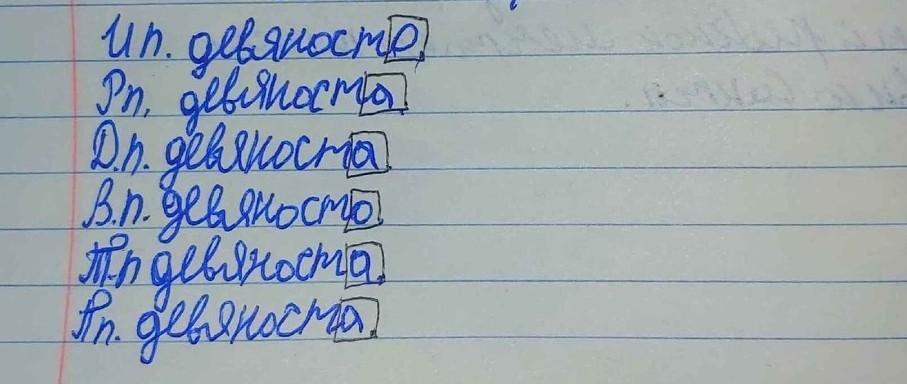 И.п. девяносто
Р.п. девяноста
Д.п. девяноста
В.п. девяносто
Т.п девяноста
П.п. девяноста